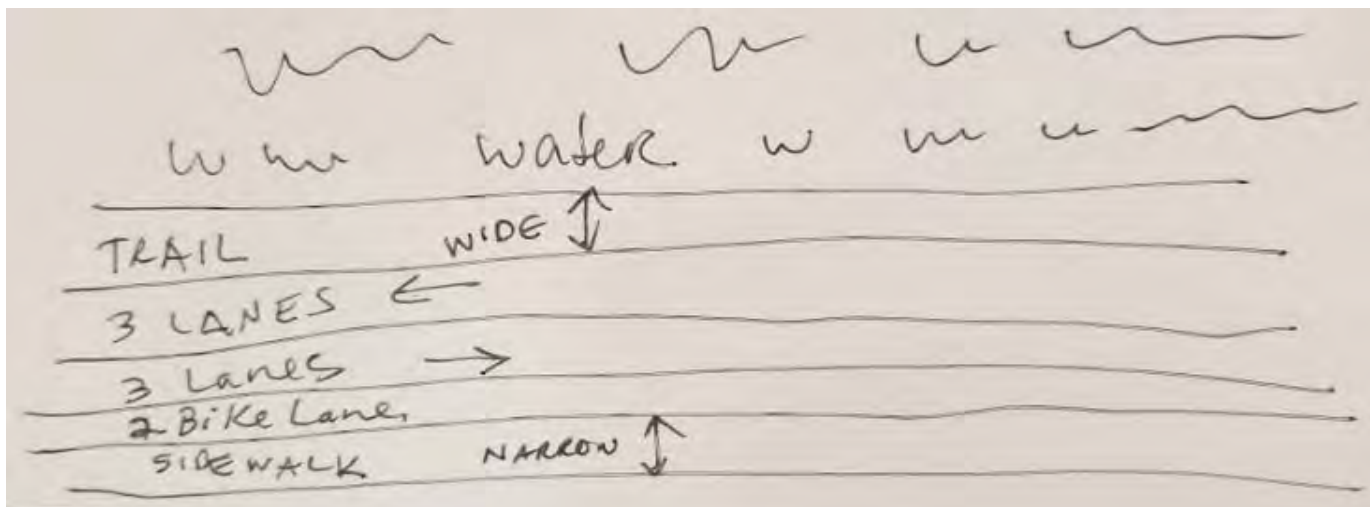 water
TRAIL WIDE
3 LANES
3 Lanes
2 Bike Lane
SIDEWALK NARROW